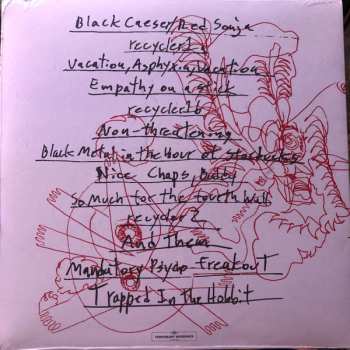 Black Caeser/Red Sonja
recycler1
Vacation, Asphyxia, Vacation
Empathy on a stick
recycler16
Non-threatening
Black Metal in the Hour of Starbucks
Nice Chaps, Buddy
So Much for the fourth Wall
recycler2
And Them
Mandatory Psycho Freakout
Trapped In The Hobbit